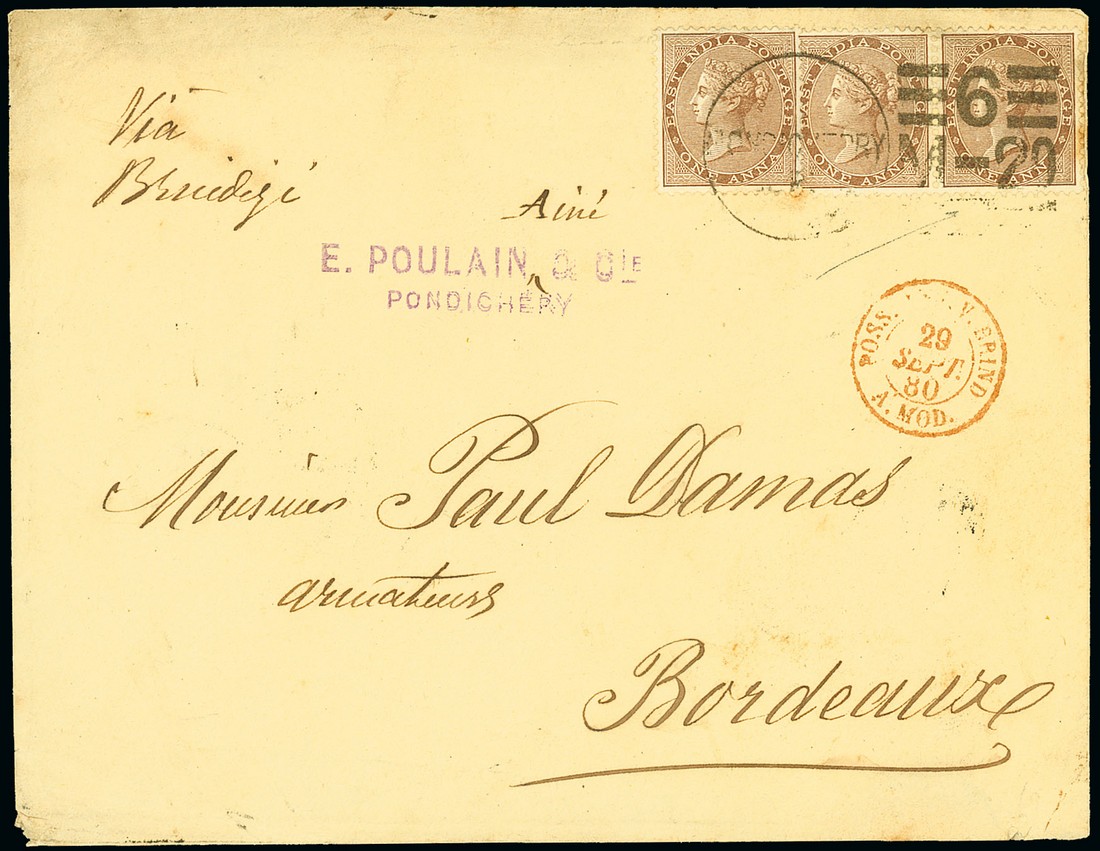 EAST INDIA POSTAGE
ONE ANNA
EAST INDIA POSTAGE
ONE ANNA
EAST INDIA POSTAGE
ONE ANNA
6
Via
Brindizi
Ainé
E. POULAIN & CIE
PONDICHÉRY
POSS. V. BRIND
29
SEPT.
80
A. MOD.
Monsieur Paul Damas
armateurs
Bordeaux